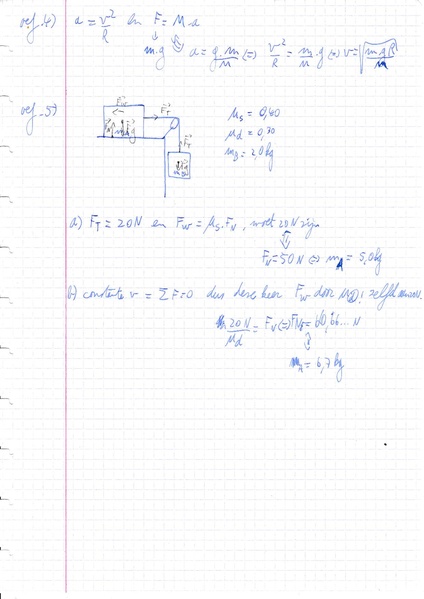 oef. 4) a = v²/R en F = M.a
m.g a = g.m/M ⇔ v²/R = m/M .g ⇔ v = √(m.g.R/M)
oef. 5)
F_W F_T
F_T
μs = 0,40
μd = 0,30
mB = 2,0 kg
a) F_T = 20N en F_W = μs.F_N , moet 20N zijn
F_N = 50N ⇔ mA = 5,0kg
b) constante v = ΣF=0 dus deze keer F_W door μD!
20N/μd = F_N ⇔ F_N = 66,66... N
mA = 6,7kg